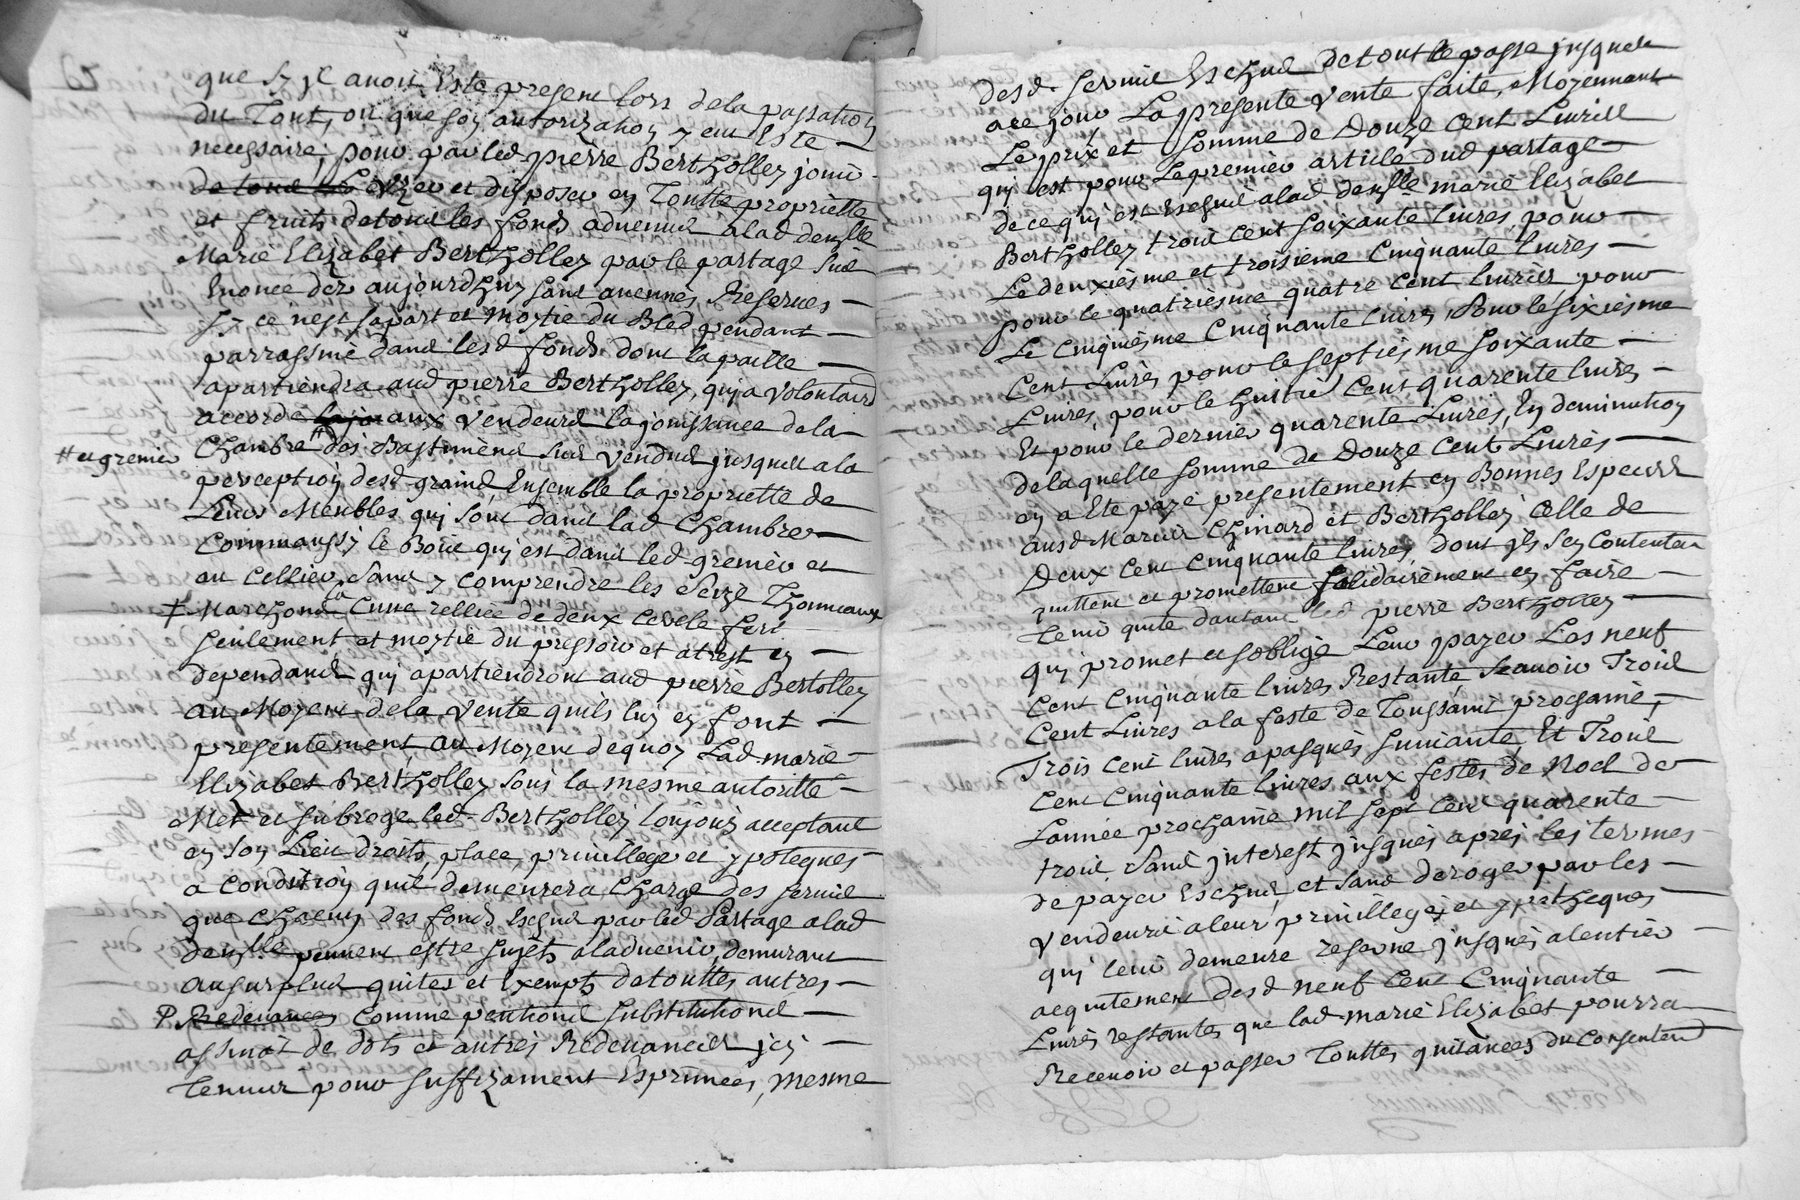 que sy jl auoit Este present lors dela passation
du Tout, ou que son autorization y eut Este
necessaire, pour par led pierre Bertholley jouir
de tout et dispozer en Toutte propriette
et fruits detous les fonds aduenus alad deuslle
Marie Elizabet Bertholley par le partage sus
Enonce dez aujourdhuy sans aucunes Reserues
sy ce n'est la part et moytie du Bled pendant
par rassine dans lesd fonds dont la paille
apartiendra aud pierre Bertholley, qui a volontaird
accorde aux vendeurs la jouissance de la
# et grenier
Chambre # des Bastiments sus vendus jusques a la
perception desd grains, Ensemble la propriette de
Leurs Meubles qui sont dans lad Chambre
Comm'aussy le Bois qui est dans led grenier et
au cellier, sans y comprendre les Seize Thonneaux
Marchons la Cuue relliee de deux cercle fert
seulement et moytie du pressoir et atrest en
dependants qui apartiendront aud pierre Bertolley
au Moyent de la vente quils luy en font
presentement, au Moyent dequoy Lad. marie
Elizabet Bertholley sous la mesme autoritte
Met et subroge led. Bertholley toujours acceptant
en son Lieu droits, place, priuillege et ypoteques
a condition quil demeurera Charge des seruis
que chacuns des fonds Escheus par led Partage alad
deuslle peuuent estre sujets aladuenir, demurant
ausurplus quites et Exempts detouttes autres
Redeuances comme pentions substitutions
assinat de dots et autres Redeuances jcy
tenues pour suffizament Exprimees, mesme
desd. seruis Escheus detout le passe jusques
ace jour La presente vente faitte, Moyennant
Le prix et somme de Douze Cent Liures
qui est pour Le premier article dud partage
de ce qui est Escheus alad deuslle marie Elizabet
Bertholley trois cent soixante liures, pour
Le deuxiesme et troisieme Cinquante liures
pour le quatriesme quatre cent liures pour
Le Cinquiesme Cinquante liures, Pour le sixiesme
Cent Liures pour le septiesme soixante
Liures, pour le huitie Cent quarente liures
Et pour le dernier quarente Liures, En deminution
de laquelle somme de Douze Cent Liures
en a Ete paye presentement en Bonnes Especes
ausd Maries Chinard et Bertholley Celle de
Deux cent cinquante liures dont jls sen Contentent
quittent et promettent solidairement en faire
tenir quite dautant led pierre Bertholley
qui promet et s'oblige Leur payer Les neuf
Cent Cinquante liures Restante Scauoir Trois
Cent Liures a la feste de Toussaint prochaine,
Trois Cent liures a pasques suiuante, Et Trois
Cent Cinquante liures aux festes de Noel de
Lannee prochaine mil sept cent quarente
trois, Sans jnterest jusques apres les termes
de payer Escheus, et sans deroger par les
vendeurs a leur priuilleges et ypotheques
qui leur demeure reserue jusques alentier
acquitement desd neuf Cent Cinquante
Liures restantes que lad. marie Elizabet pourra
Receuoir et passer Touttes quitances du Consentemt